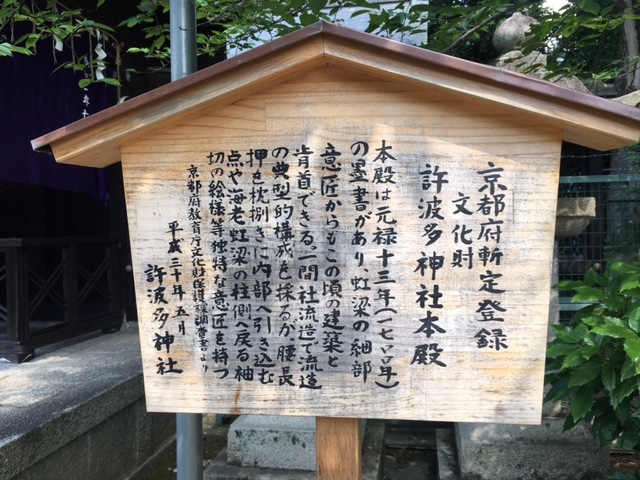 京都府暫定登録
文化財
許波多神社本殿
本殿は元禄十三年(一七〇〇年)
の墨書があり、虹梁の細部
意匠からもこの頃の建築と
肯首できる。一間社流造で流造
の典型的構成を採るが、腰長
押を枕捌きに内部へ引き込む
点や海老虹梁の柱側へ戻る袖
切の絵様等独特な意匠を持つ
京都府教育庁文化財保護課調査書より
平成三十年五月
許波多神社